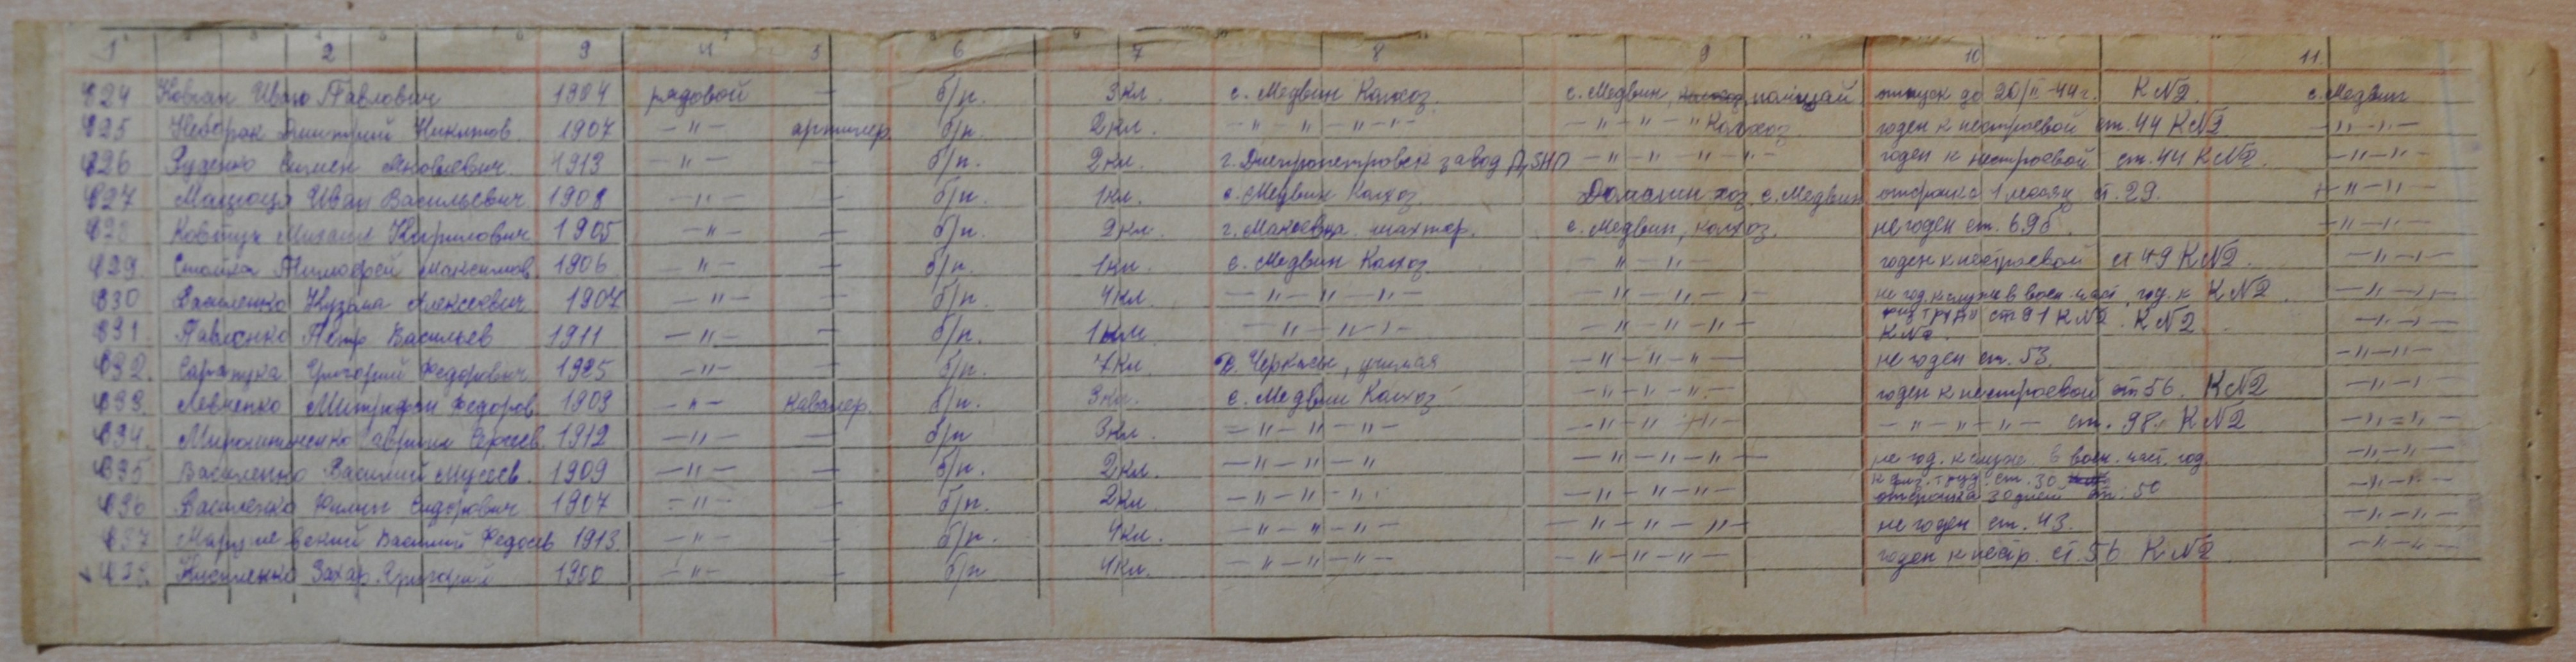 1 2 3 4 5 6 7 8 9 10 11
824 Ковган Иван Павлович 1904 рядовой — б/п. 3 кл. с. Медвин Колхоз. с. Медвин, полицай отпуск до 20/II-44 г. К №2. с. Медвин
825 Неборак Дмитрий Никитов. 1907 —"— артилер. б/п. 2 кл. —"—"—"— —"—"—" Колхоз. годен к нестроевой ст. 44 К №2. —"—"—
826 Руденко Семен Яковлевич. 1913 —"— — б/п. 2 кл. г. Днепропетровск завод —"—"—"— годен к нестроевой ст. 44 К №2. —"—"—
827 Мацюця Иван Васильевич 1908 —"— — б/п. 1 кл. с. Медвин Колхоз. Домашн хоз. с. Медвин отсрочка 1 месяц ст. 29. —"—"—
828 Ковтун Михаил Кирилович 1905 —"— — б/п. 2 кл. г. Макеевка шахтер. с. Медвин, колхоз. не годен ст. 69б. —"—"—
829 Тимофей Максимов. 1906 —"— — б/п. 1 кл. с. Медвин Колхоз. —"—"— годен к нестроевой ст 49 К №2. —"—"—
830 Василенко Кузьма Алексеевич 1907 —"— — б/п. 4 кл. —"—"—"— —"—"—"— не год. к службе в воен. част, год. к К №2. —"—"—
831 Павленко Петр Васильев 1911 —"— — б/п. 1 кл. —"—"—"— —"—"—"— физ труду ст 91 К №2. К №2 —"—"—
К №2.
832. Григорий Федорович 1925 —"— — б/п. 7 кл. г. Черкасы, училася —"—"—"— не годен ст. 53. —"—"—
833. Левченко Митрофан Федоров. 1909 —"— кавалер. б/п. 3 кл. с. Медвин Колхоз —"—"—"— годен к нестроевой ст 56. К №2 —"—"—
834. Гавриил Сергеев. 1912 —"— — б/п 3 кл. —"—"—"— —"—"—"— —"—"—"— ст. 98. К №2 —"—"—
835 Василенко Василий Мусеев. 1909 —"— — б/п. 2 кл. —"—"—"— —"—"—"— не год. к служб. в воен. част. год —"—"—
к физ. труд. ст. 30
836 Василенко Филип Сидорович 1907 —"— — б/п. 2 кл. —"—"—"— —"—"—"— отсрочка 30 дней ст. 50 —"—"—
837 Василий Федосев 1913. —"— — б/п. 4 кл. —"—"—"— —"—"—"— не годен ст. 43. —"—"—
838. Захар Григорий 1900 —"— — б/п 4 кл. —"—"—"— —"—"—"— годен к нестр. ст. 56 К №2. —"—"—